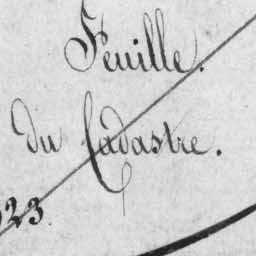 Feuille.
du Cadastre.
23.